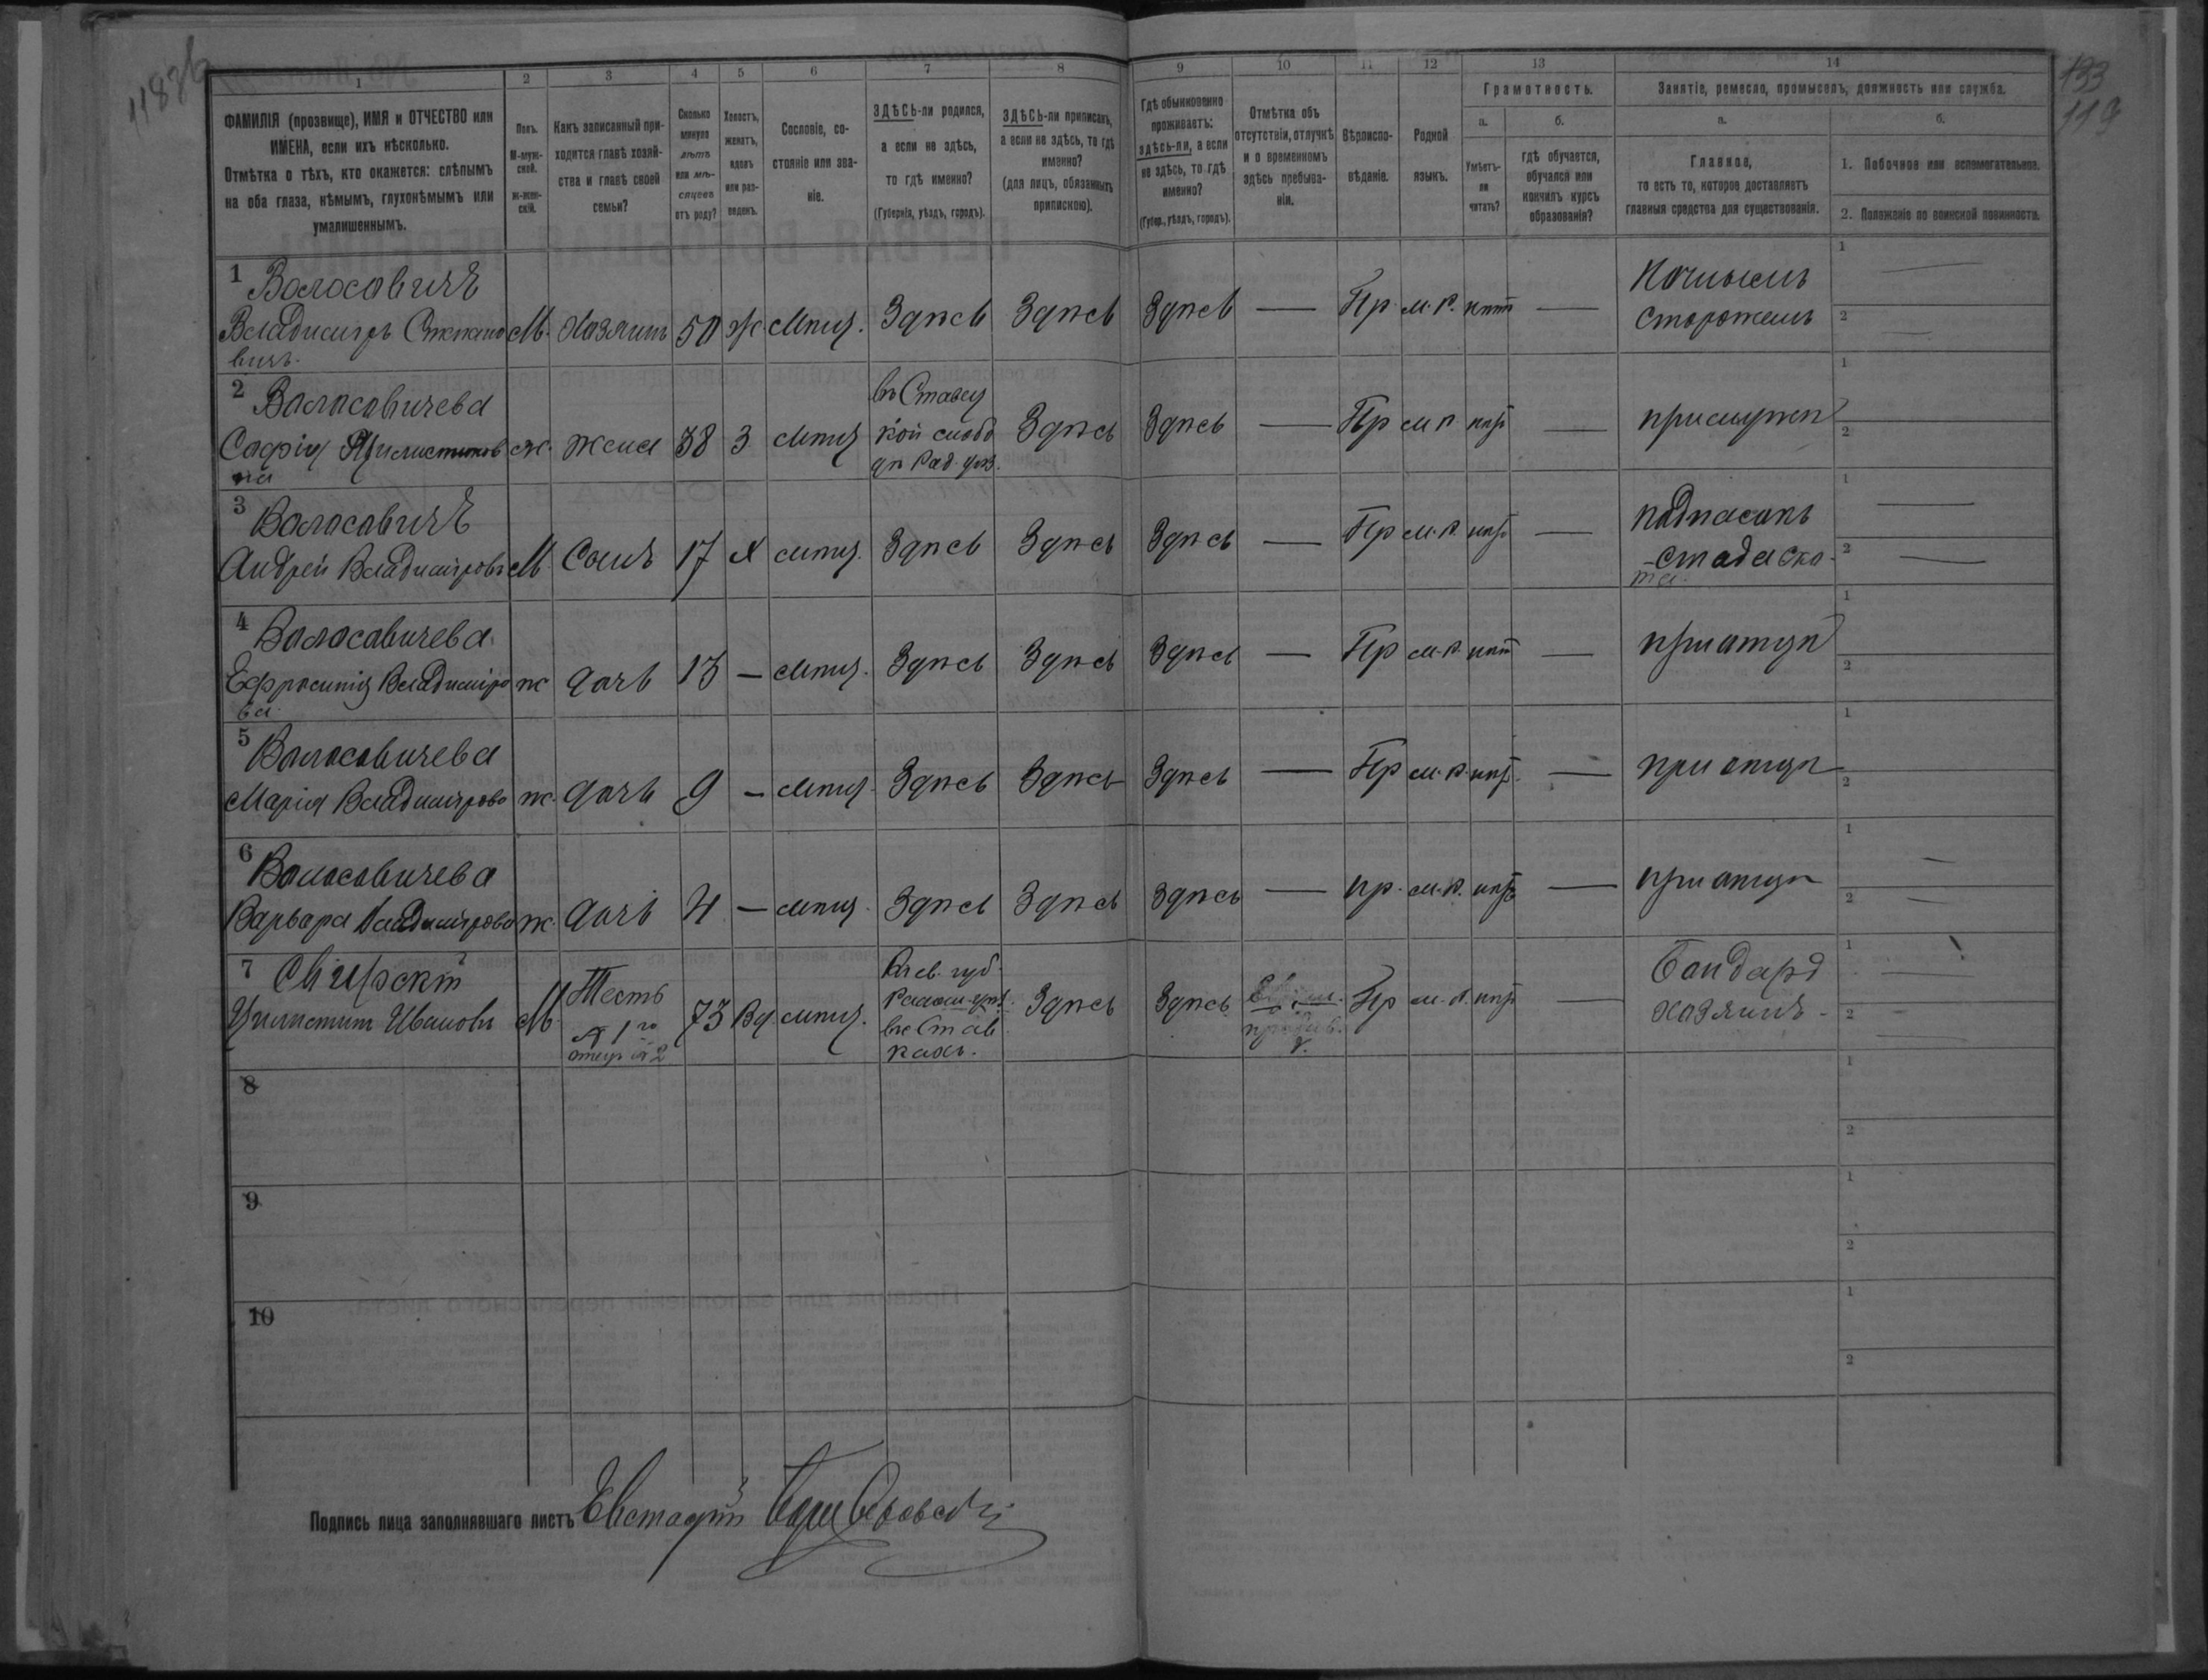 118 об
133
119
1
2
3
4
5
6
7
8
9
10
11
12
13
14
ФАМИЛІЯ (прозвище), ИМЯ и ОТЧЕСТВО или
ИМЕНА, если ихъ нѣсколько.
Отмѣтка о тѣхъ, кто окажется: слѣпымъ
на оба глаза, нѣмымъ, глухонѣмымъ или
умалишеннымъ.
Полъ.
М-муж-
ской.
Ж-жен-
скій.
Какъ записанный при-
ходится главѣ хозяй-
ства и главѣ своей
семьи?
Сколько
минуло
лѣтъ
или мѣ-
сяцевъ
отъ роду?
Холостъ,
женатъ,
вдовъ
или раз-
веденъ.
Сословіе, со-
стояніе или зва-
ніе.
ЗДѢСЬ-ли родился,
а если не здѣсь,
то гдѣ именно?
(Губернія, уѣздъ, городъ).
ЗДѢСЬ-ли приписанъ,
а если не здѣсь, то гдѣ
именно?
(для лицъ, обязанныхъ
припискою).
Гдѣ обыкновенно
проживаетъ:
здѣсь-ли, а если
не здѣсь, то гдѣ
именно?
(Губер., уѣздъ, городъ).
Отмѣтка объ
отсутствіи, отлучкѣ
и о временномъ
здѣсь пребыва-
ніи.
Вѣроиспо-
вѣданіе.
Родной
языкъ.
Грамотность.
а.
Умѣетъ-
ли
читать?
б.
гдѣ обучается,
обучался или
кончилъ курсъ
образованія?
Занятіе, ремесло, промыселъ, должность или служба.
а.
Главное,
то есть то, которое доставляетъ
главныя средства для существованія.
б.
1. Побочное или вспомогательное.
2. Положеніе по воинской повинности.
1 Волосовичъ
Владиміръ Степано
вичъ.
М. Хозяинъ 50 Ж. Мѣщ. Здѣсь Здѣсь Здѣсь — Пр. м.р. нѣтъ —
Ночнымъ
Сторожемъ
1
2
2 Волосовичева
Софія
на
ж. жена 38 З мѣщ
въ Ставец
кой слобо
дѣ Рад. уѣз.
Здѣсь Здѣсь — Пр м р нѣт —
при мужѣ
1
2
3 Волосовичъ
Андрей Владиміровъ
М. Сынъ 17 Х мѣщ. Здѣсь Здѣсь Здѣсь — Пр м.р. нѣт —
подпасокъ
стада ско-
та.
1
2
4 Волосовичева
Ефросинія Владиміро
ва.
ж дочь 13 — мѣщ. Здѣсь Здѣсь Здѣсь — Пр м.р. нѣт —
при отцѣ
1
2
5 Волосовичева
Марія Владимірова
ж. дочь 9 — мѣщ. Здѣсь Здѣсь Здѣсь — Пр м.р. нѣт. —
при отцѣ
1
2
6 Волосовичева
Варвара Владимірова
ж. дочь 4 — мѣщ. Здѣсь Здѣсь Здѣсь — пр. м.р. нѣтъ —
при отцѣ
1
2
7 Свирскій
Ивановъ
М
Тесть
1го
отецъ 2
73 Вд мѣщ.
Кіев. губ.
уѣз.
въ Став
кахъ.
Здѣсь Здѣсь
Пр м.р. нѣт —
Бондаръ
хозяинъ -
1
2
8
1
2
9
1
2
10
1
2
Подпись лица заполнявшаго листъ Евстафій